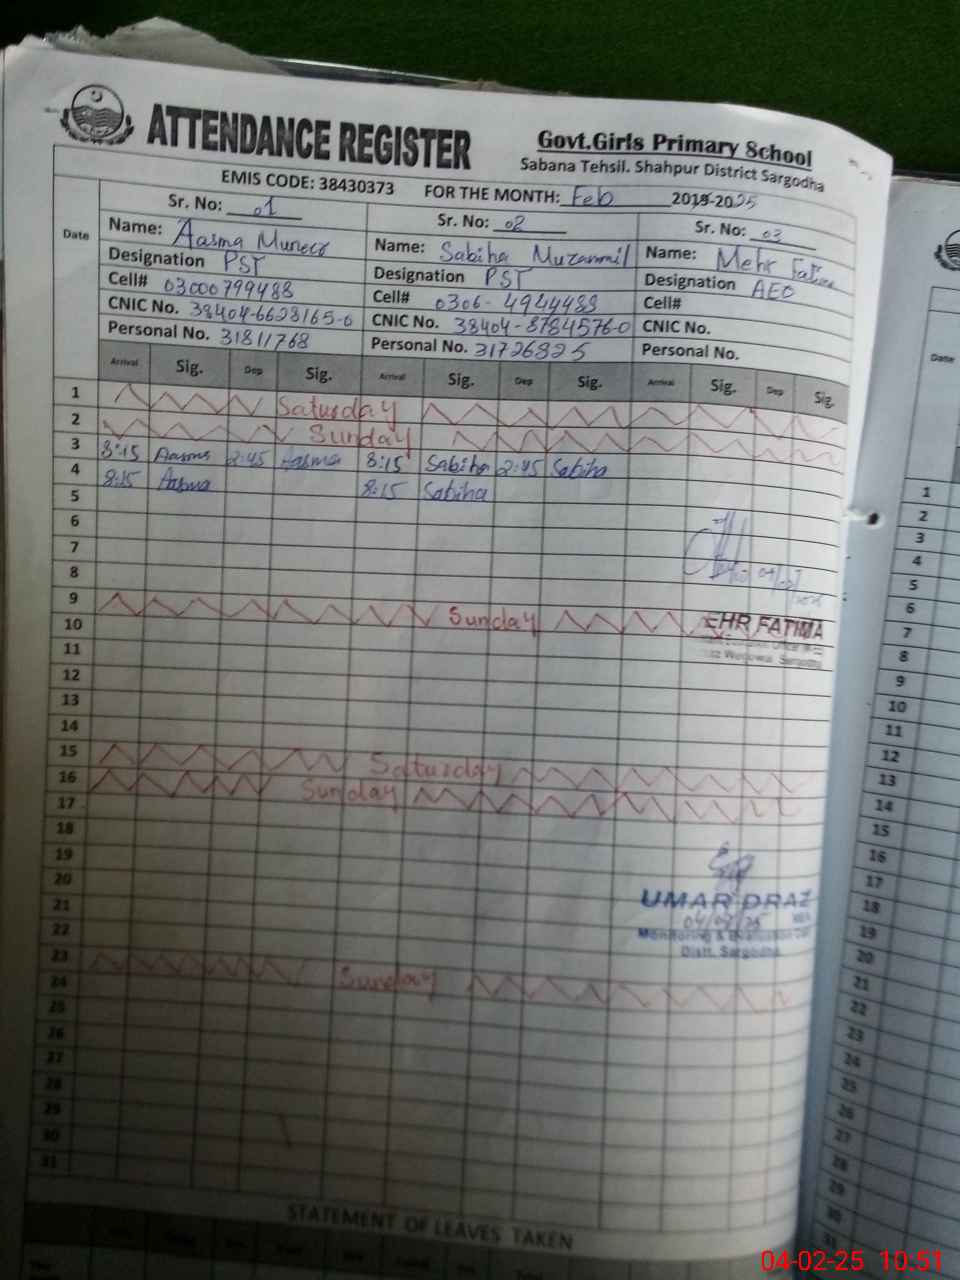 ATTENDANCE REGISTER
Govt.Girls Primary School
Sabana Tehsil. Shahpur District Sargodha
EMIS CODE: 38430373 FOR THE MONTH: Feb 2025
Date
Sr. No: 01 Sr. No: 02 Sr. No: 03
Name: Aasma Name: Sabiha Muzammil Name: Mehr Fatima
Designation PST Designation PST Designation AEO
Cell# 03000799488 Cell# 0306-4944488 Cell#
CNIC No. 38404-6628165-0 CNIC No. 38404-8784576-0 CNIC No.
Personal No. 31811768 Personal No. 31726825 Personal No.
Arrival Sig. Dep Sig. Arrival Sig. Dep Sig. Arrival Sig. Dep Sig.
1 Saturday
2 Sunday
3 8:15 Aasma 2:45 Aasma 8:15 Sabiha 2:45 Sabiha
4 8:15 Aasma 8:15 Sabiha
5
6
7
8
9 Sunday
10
EHR FATIMA
11
12
13
14
15 Saturday
16 Sunday
17
18
19
20
21
UMAR DRAZ
04/02/25
22
Monitoring & Evaluation
Distt. Sargodha
23 Sunday
24
25
26
27
28
29
30
31
STATEMENT OF LEAVES TAKEN
Date
1
2
3
4
5
6
7
8
9
10
11
12
13
14
15
16
17
18
19
20
21
22
23
24
25
26
27
28
29
30
31
04-02-25 10:51